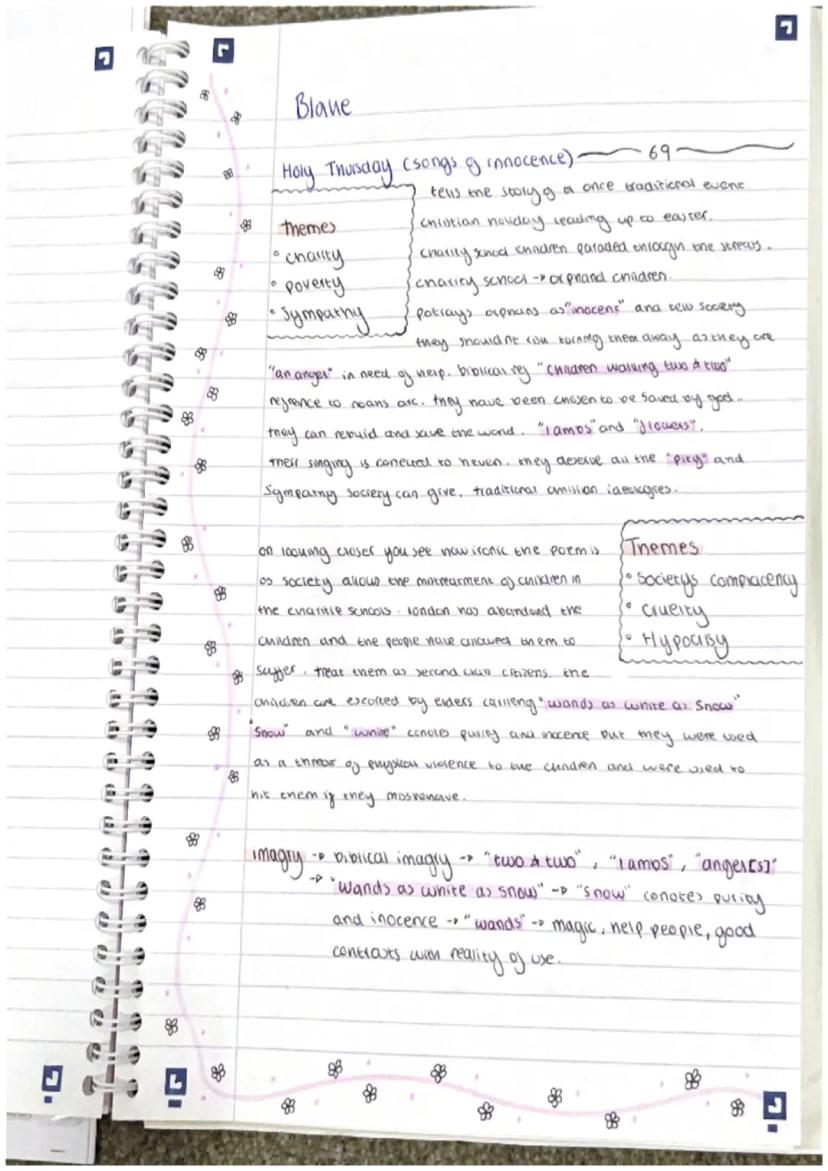 Blake
Holy Thursday (songs of innocence) 69
Themes
• charity
• poverty
• sympathy
tells the story of a once traditional event.
christian holiday leading up to easter.
charity school children paraded through the streets.
charity school → orphand children.
potrays orphans as "inocent" and tells society
they shouldnt risk turning them away as they are
"an angel" in need of help. biblical ref "children walking two & two"
refrence to noahs arc. they have been chosen to be saved by god.
they can rebuid and save the world. "lambs" and "flowers".
their singing is conected to heven. they deserve all the "pity" and
sympathy society can give. traditional christian ideologies.
on looking closer you see how ironic the poem is
as society allows the mistreatment of children in
the charitie schools. london has abandond the
children and the people have allowed them to
suffer. treat them as second class citizens. the
children are escorted by elders carrieng "wands as white as snow"
"snow" and "white" conotes purity and inocence but they were used
as a threat of physical violence to the children and were used to
hit them if they misbehave.
Themes
• Societys complacency
• cruelty
• Hypocrisy
imagry → biblical imagry → "two & two", "lambs", "angel[s]"
→ "wands as white as snow" → "snow" conotes purity
and inocence → "wands" → magic, help people, good
contrasts with reality of use.